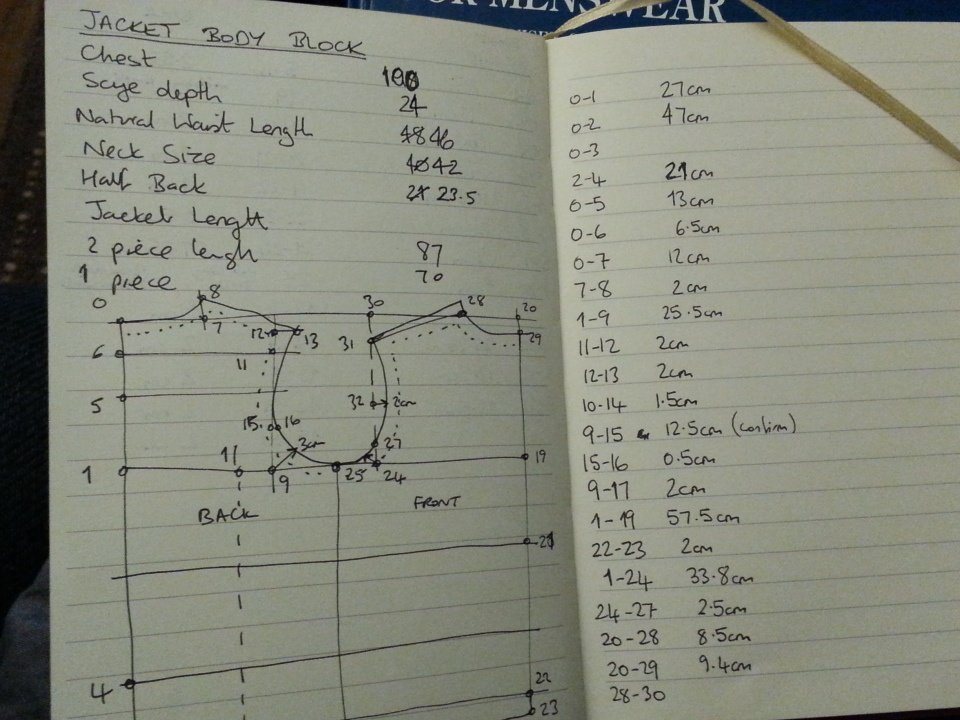 OR MENSWEAR
JACKET BODY BLOCK
Chest 100
Scye depth 24
Natural Waist Length 48 46
Neck Size 40 42
Half Back 21 23.5
Jacket Lenght
2 piece lengh 87
1 piece 70
0 8 30 28 20
7 12 13 31 29
6 11
5 32 2cm
15 16 27
1 11 3cm 19
9 25 24
BACK FRONT
21
4 22
23
0-1 27cm
0-2 47cm
0-3
2-4 21cm
0-5 13cm
0-6 6.5cm
0-7 12cm
7-8 2cm
1-9 25.5cm
11-12 2cm
12-13 2cm
10-14 1.5cm
9-15 12.5cm (confirm)
15-16 0.5cm
9-17 2cm
1-19 57.5cm
22-23 2cm
1-24 33.8cm
24-27 2.5cm
20-28 8.5cm
20-29 9.4cm
28-30